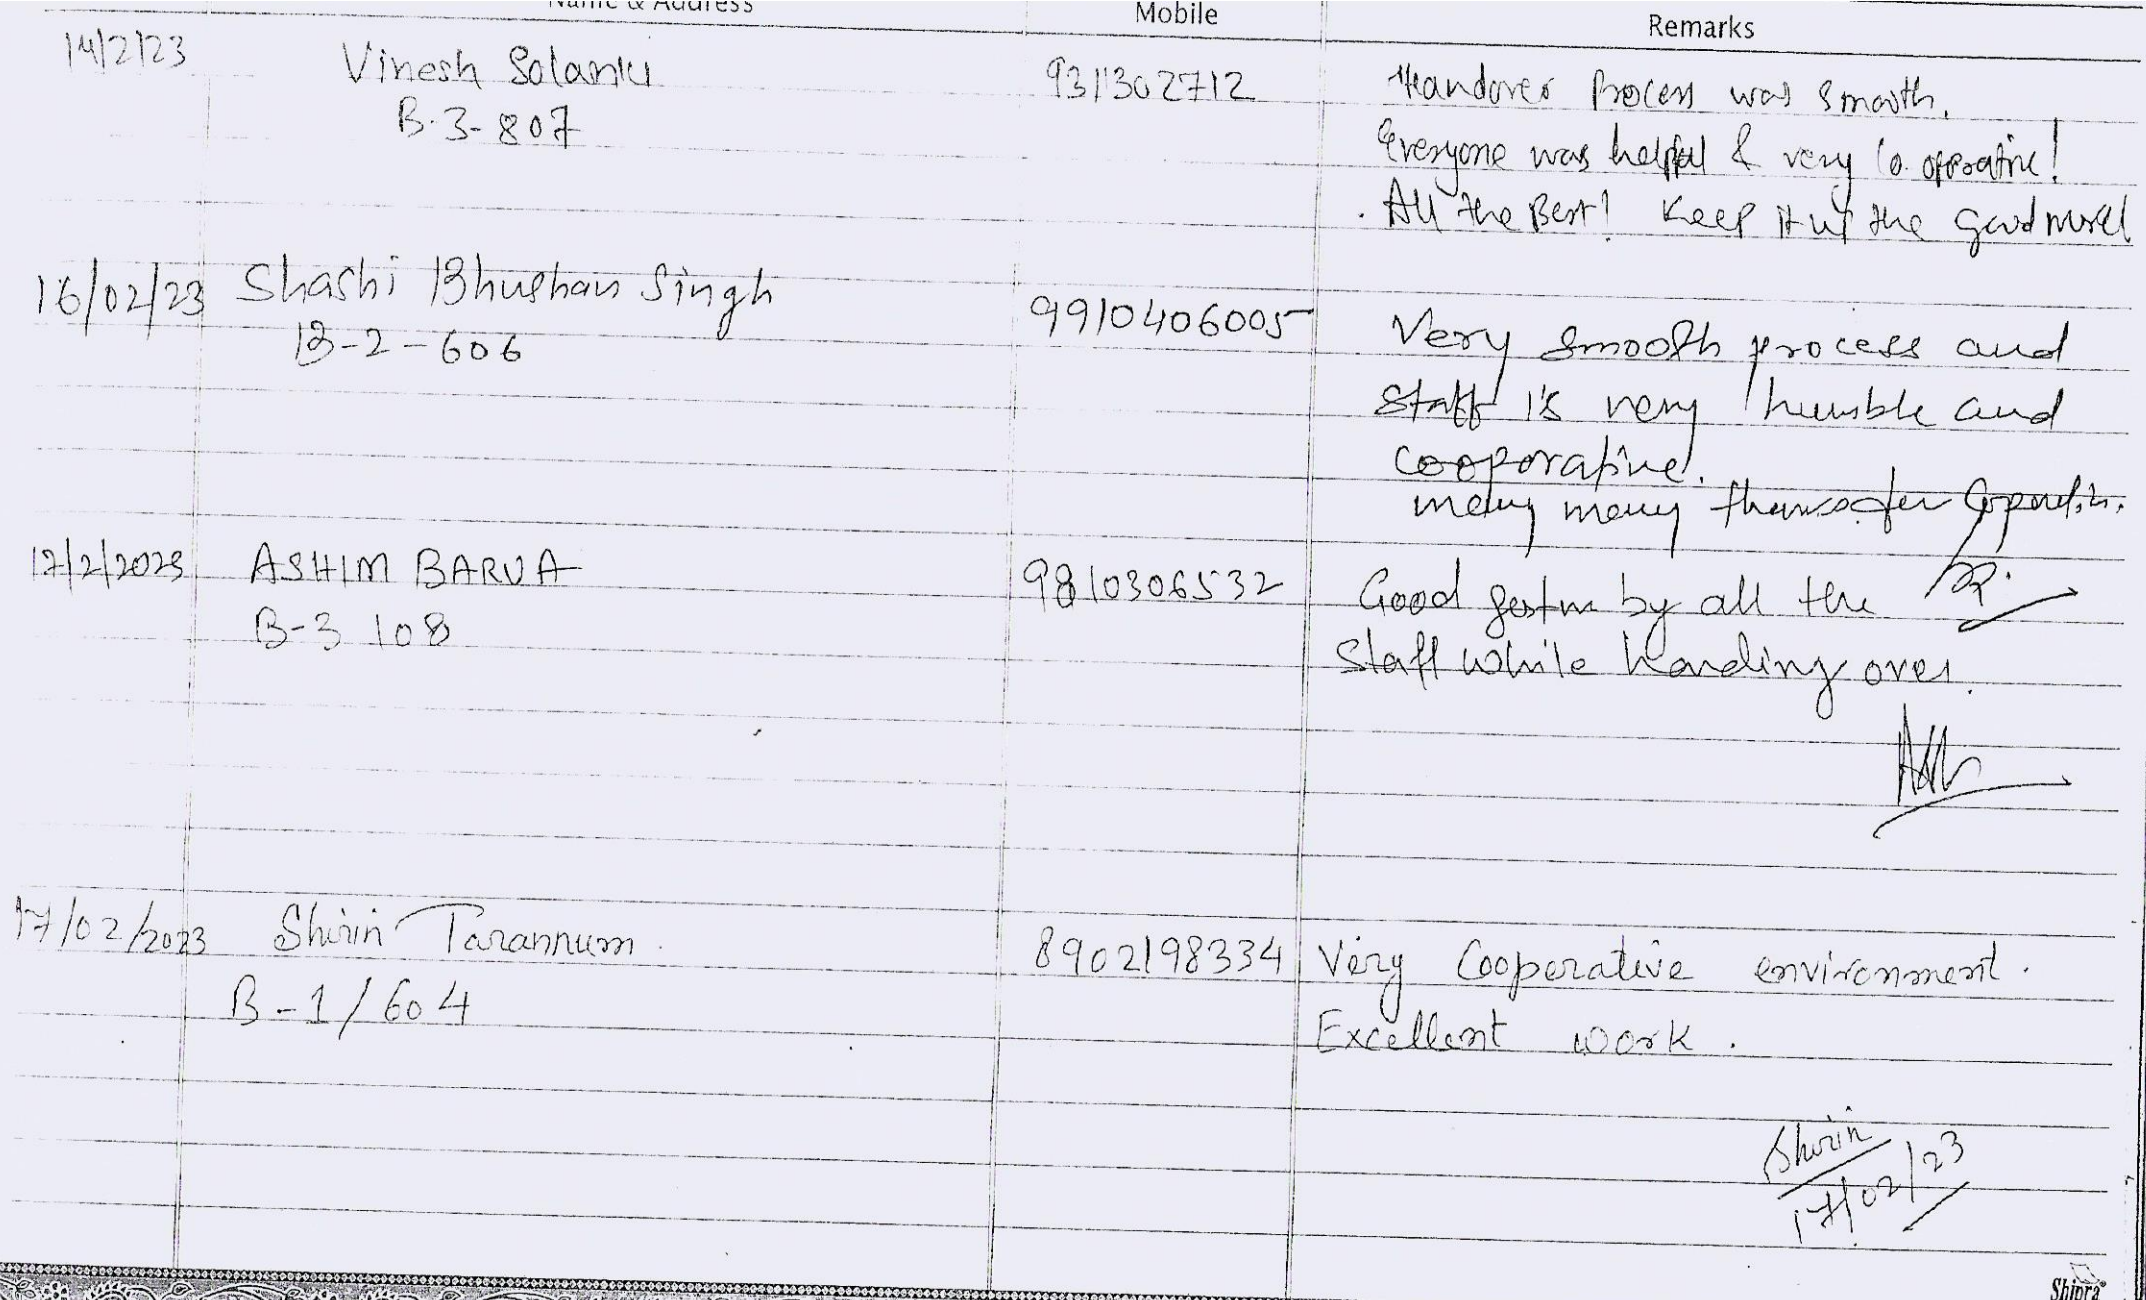 Name & Address Mobile Remarks
14/2/23 Vinesh Solanki 9311302712 Handover Process was smooth.
B-3-807 Everyone was helpful & very Co-operative!
All the Best! Keep it up the good
16/02/23 Shashi Bhushan Singh 9910406005 Very smooth process and
B-2-606 Staff is very humble and
cooporative.
many many for
17/2/2023 ASHIM BARUA 9810306532 Good by all the
B-3 108 Staff while handing over.
17/02/2023 Shirin Tarannum 8902198334 Very Cooperative environment.
B-1/604 Excellent work.
Shirin
17/02/23
Shipra